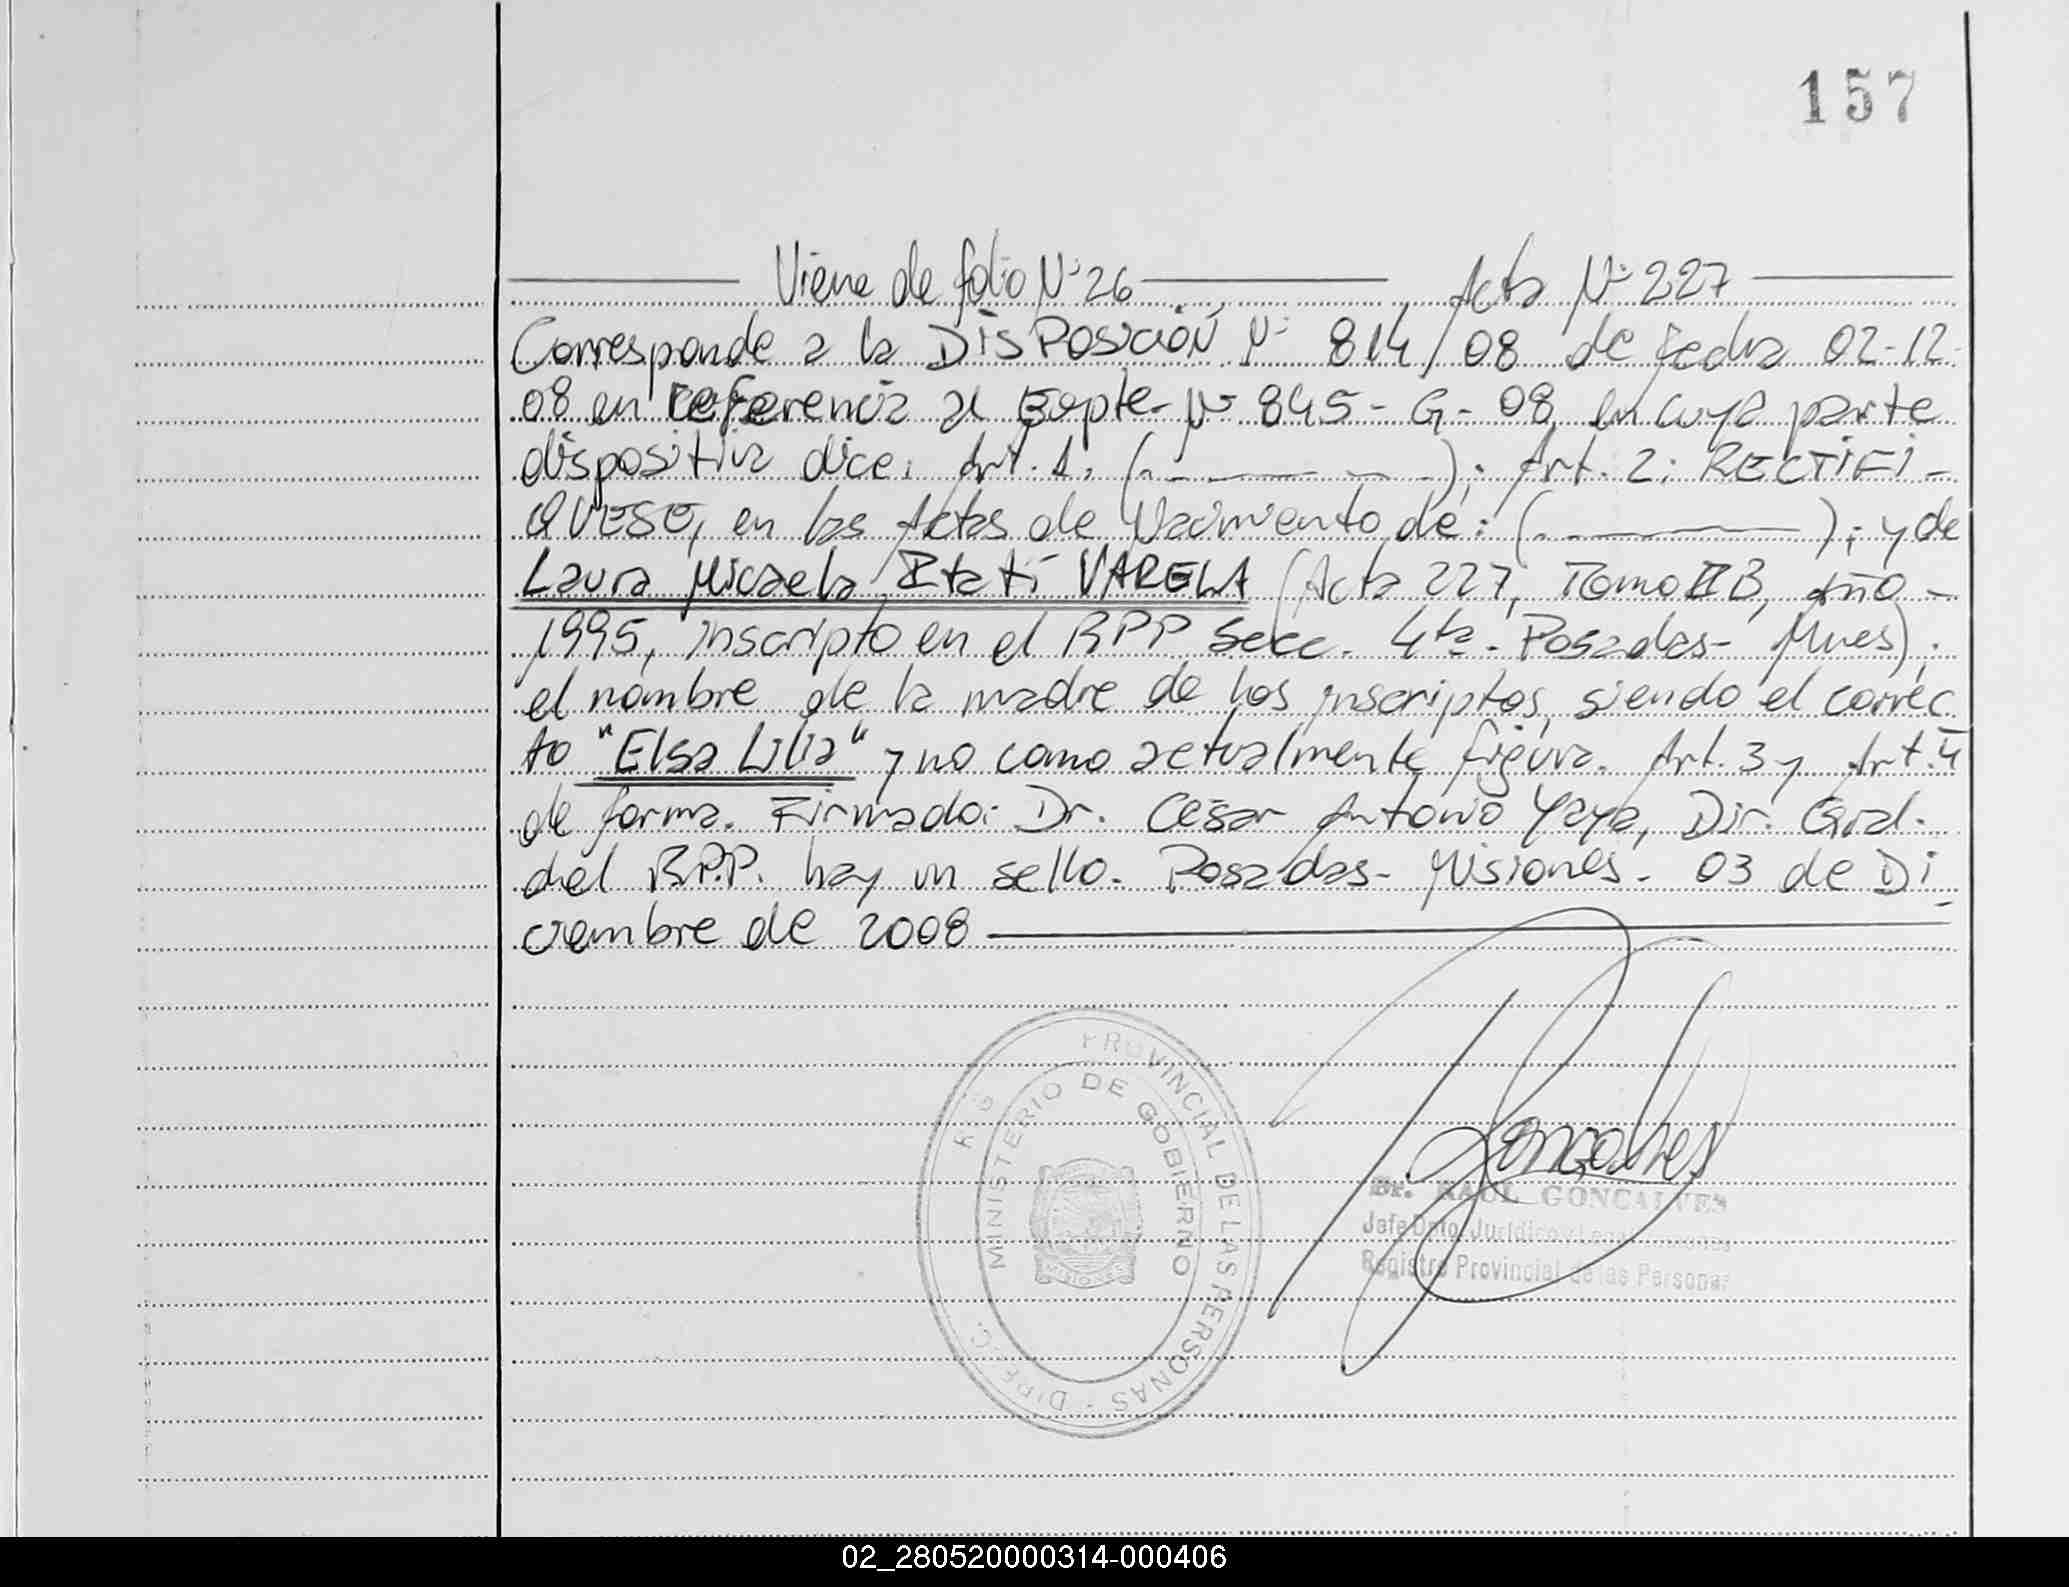 157
Viene de folio N° 26 Acta N° 227
Corresponde a la DISPOSICIÓN N° 814/08 de fecha 02-12-
08 en referencia al Expte- N° 845- G- 08, en cuya parte
dispositiva dice: Art. 1: (- - — - -); Art. 2: RECTIFI-
QUESE, en las Actas de Nacimiento de: (- ———); y de
Laura Micaela Itatí VARELA (Acta 227, Tomo II B, año -
1995, inscripto en el RPP Secc. 4ta- Posadas- Mnes);
el nombre de la madre de los inscriptos, siendo el correc
to "Elsa Lilia" y no como actualmente figura. Art. 3 y Art. 4
de forma. Firmado: Dr. César Antonio Yaya, Dir. Gral.
del R.P.P. hay un sello. Posadas- Misiones. 03 de Di
ciembre de 2008
PROVINCIAL DE LAS PERSONAS - DIREC.
MINISTERIO DE GOBIERNO
MISIONES
Goncalves
Dr. RAUL GONCALVES
Jefe Dpto. Jurídico y
Registro Provincial de las Personas
02_280520000314-000406